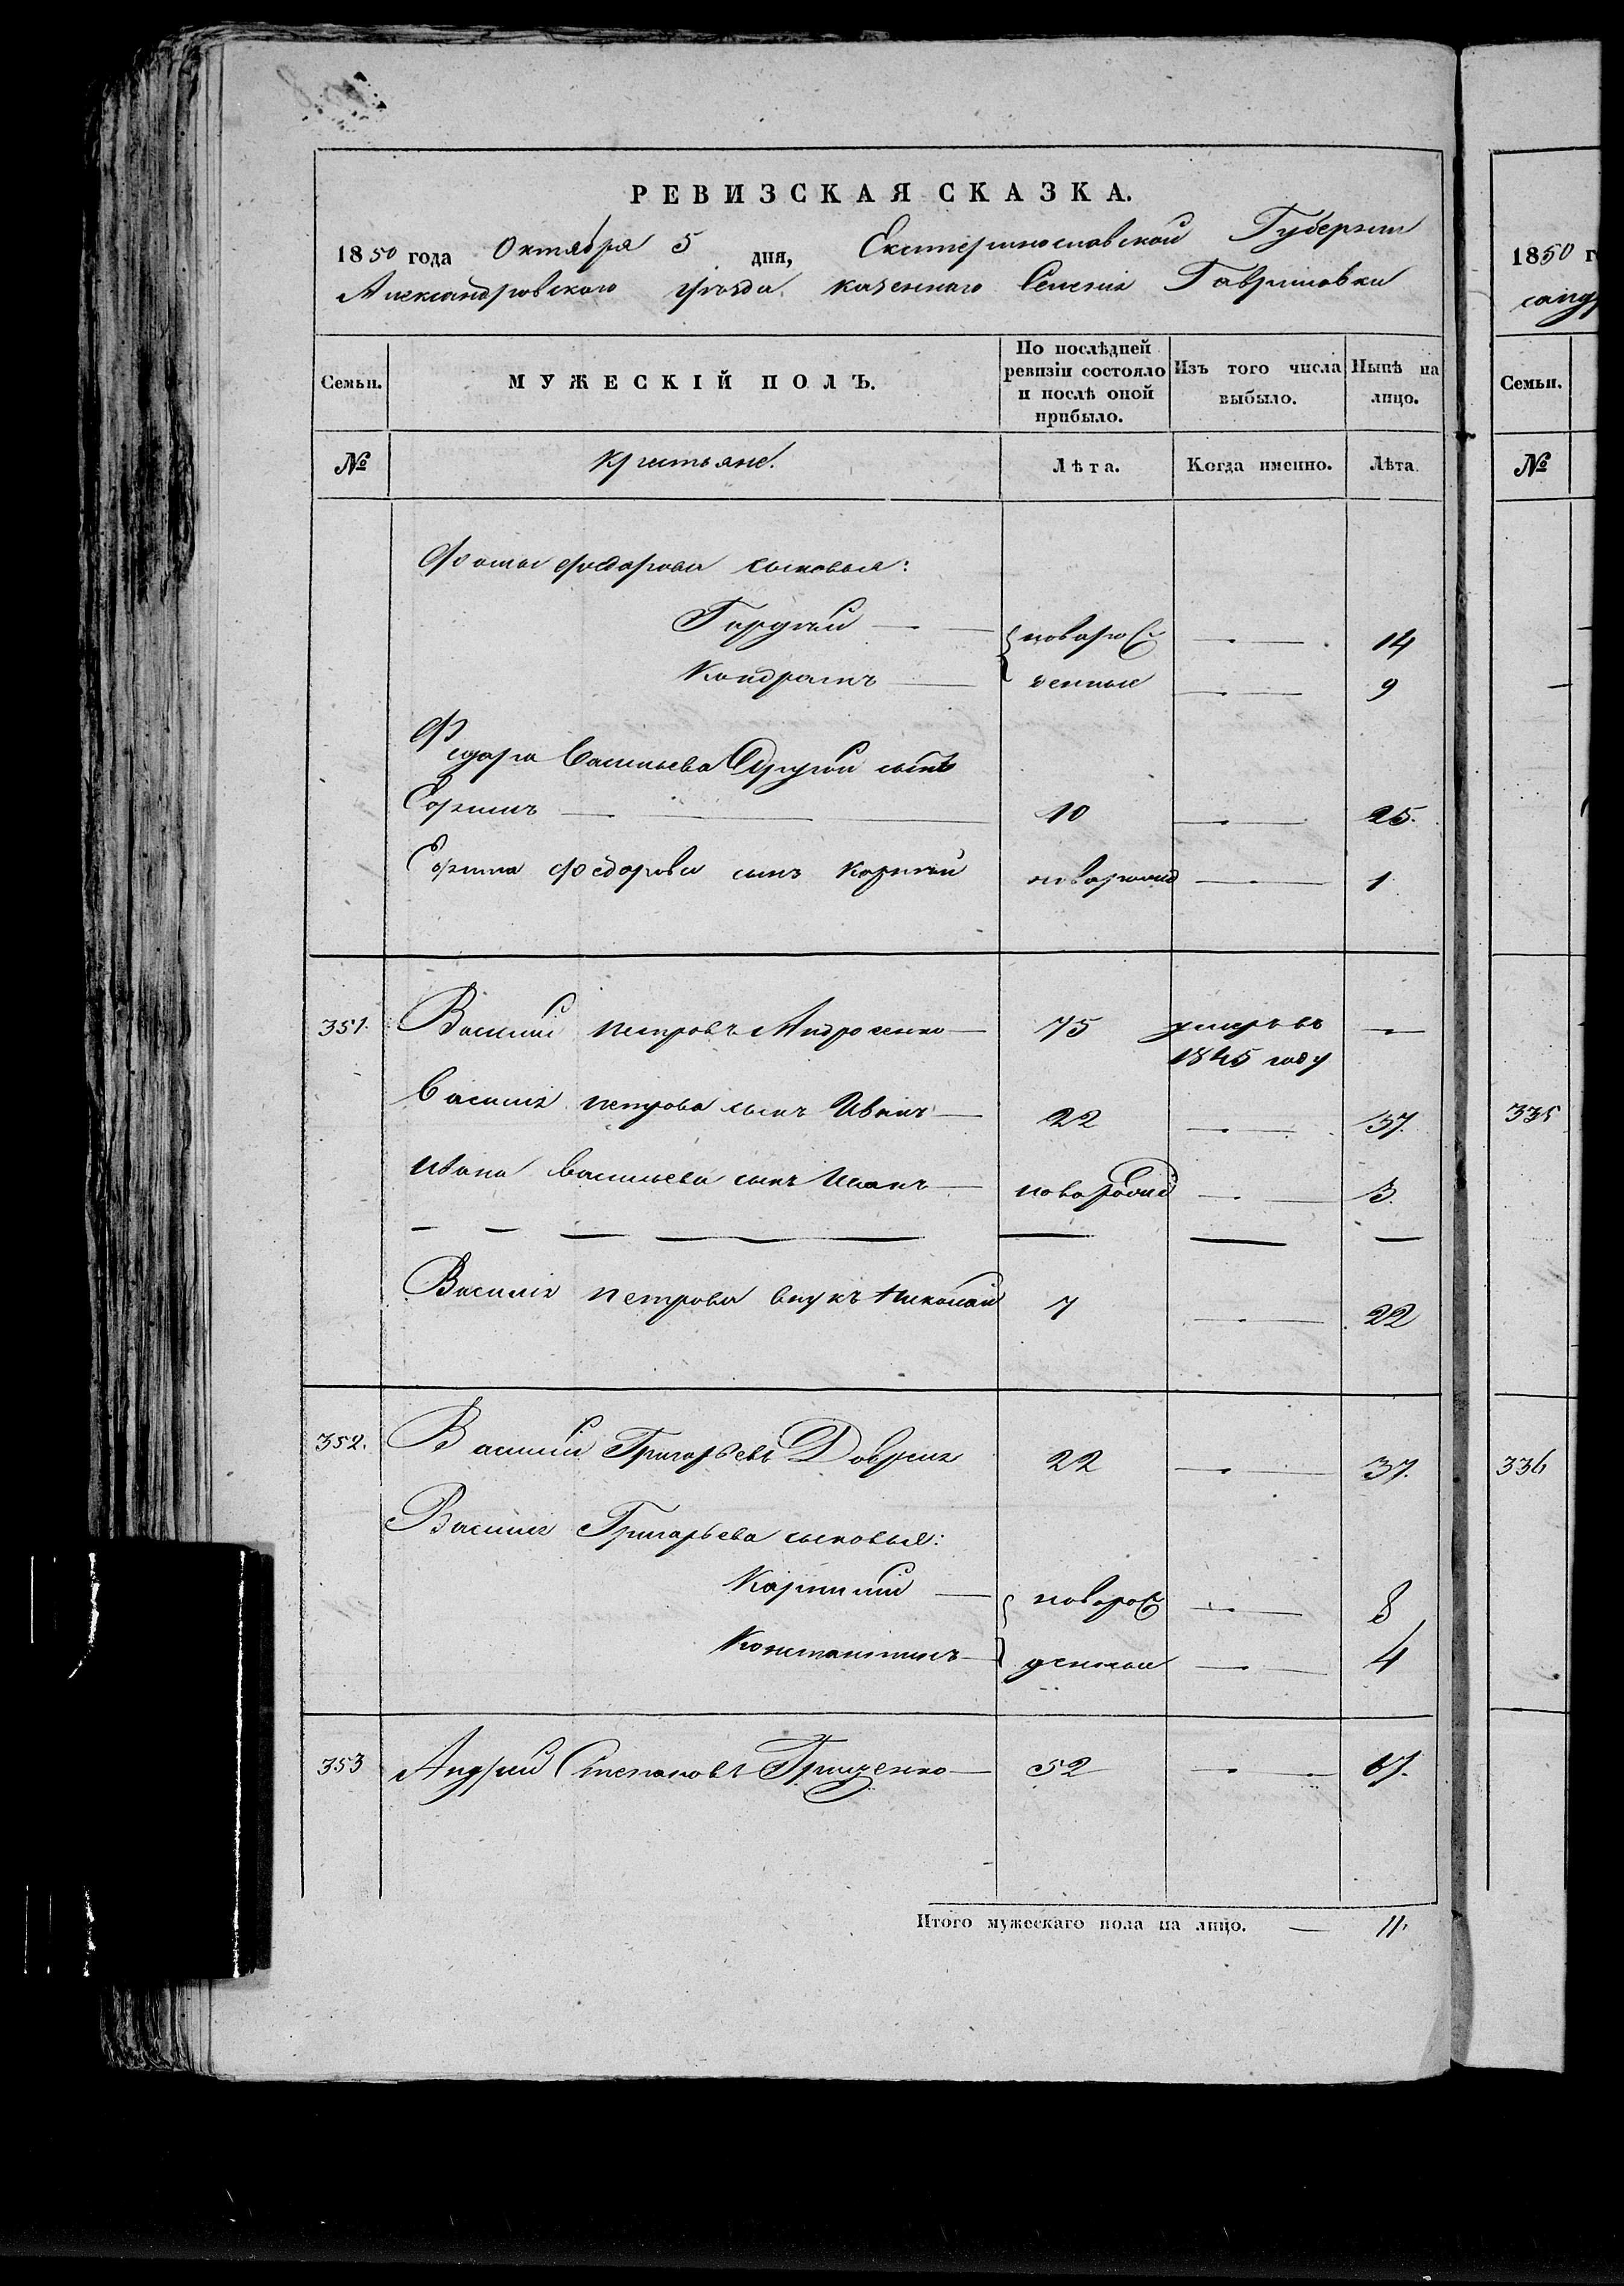 РЕВИЗСКАЯ СКАЗКА.
1850 года Октября 5 дня, Екатеринославской Губернии
Александровского уѣзда казеннаго Селенія Гавриловки
Семьи. МУЖЕСКІЙ ПОЛЪ. По послѣдней ревизіи состояло и послѣ оной прибыло. Изъ того числа выбыло. Нынѣ на лицо.
№ Крестьяне. Лѣта. Когда именно. Лѣта.
Фомы Федорова сыновья:
Гордѣй — новорож 14
Кондратъ — денные 9
Федора Васильева другой сынъ
Ефимъ — 10 — 25.
Ефима Федорова сынъ Корнѣй новорожд — 1
351. Василій Петровъ Андросенко — 75 умеръ въ —
1845 году
Василія Петрова сынъ Иванъ — 22 — 37.
Ивана Васильева сынъ Иванъ — новорожд — 3.
Василія Петрова внукъ Николай 7 — 22
352. Василій Григорьевъ 22 — 37.
Василія Григорьева сыновья:
Корнилій — новорож — 8
Константинъ — денные — 4
353 Андрей Степановъ Грищенко — 52 — 67.
Итого мужескаго пола на лицо. — 11.
1850 г
Семьи.
№
335
336